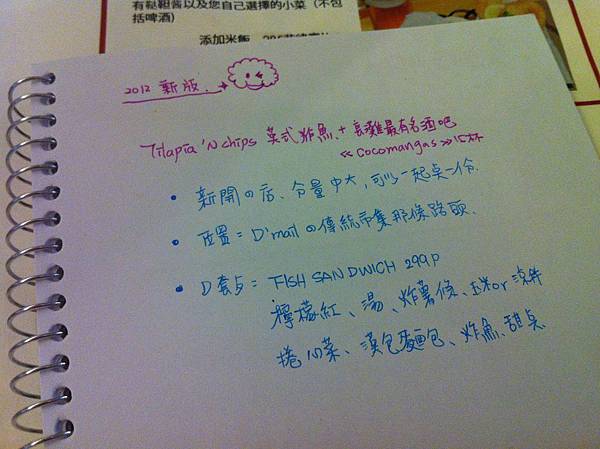 有鬆軟醬以及您自己選擇的小菜（不包
括啤酒）
添加米飯
2012 新版.
Tilapia 'N chips 英式炸魚 + 長灘最有名酒吧
<<Cocomangas>> 15杯
• 新開の店、份量中大,可以一起点一份.
• 位置 = D'mallの傳統市集那條路頭.
• D套点 = FISH SANDWICH 299p
檸檬紅、湯、炸薯條、玉米or涼拌
捲心菜、漢包麵包、炸魚、甜点